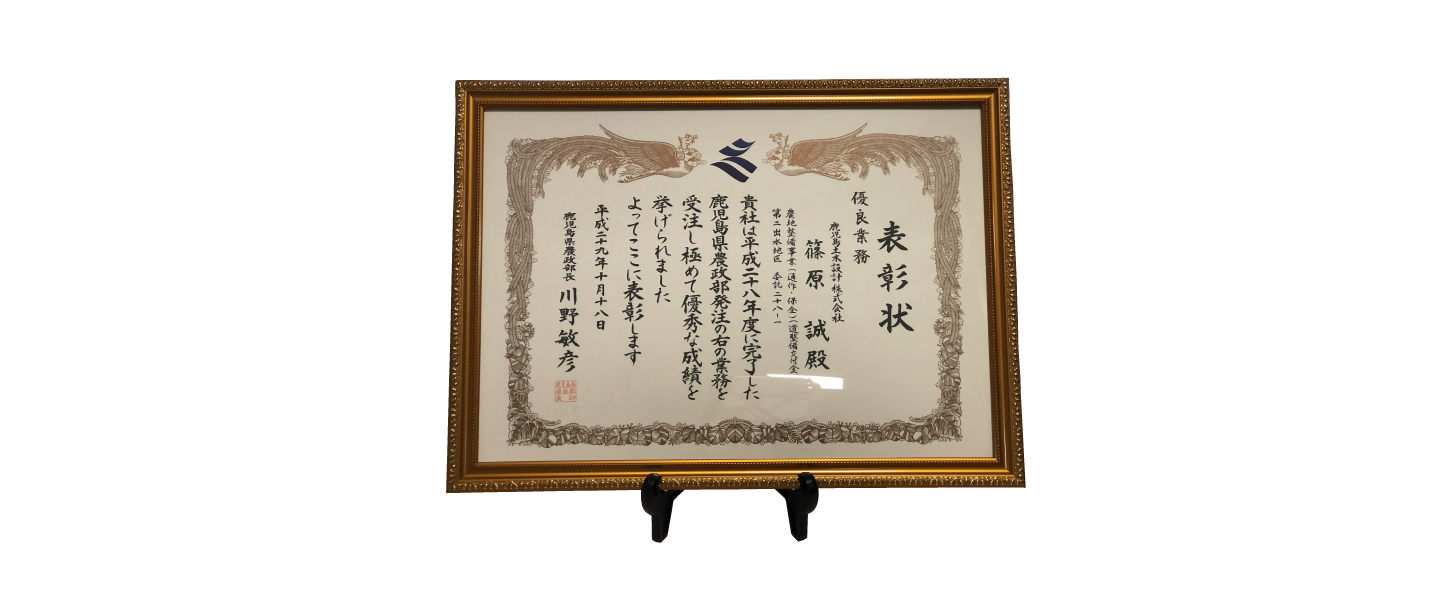 表彰状
優良業務
鹿児島土木設計株式会社
篠原 誠 殿
農地整備事業(通作・保全)(道整備交付金)
第二出水地区 委託二十八-一
貴社は平成二十八年度に完了した
鹿児島県農政部発注の右の業務を
受注し極めて優秀な成績を
挙げられました
よってここに表彰します
平成二十九年十月十八日
鹿児島県農政部長 川野敏彦